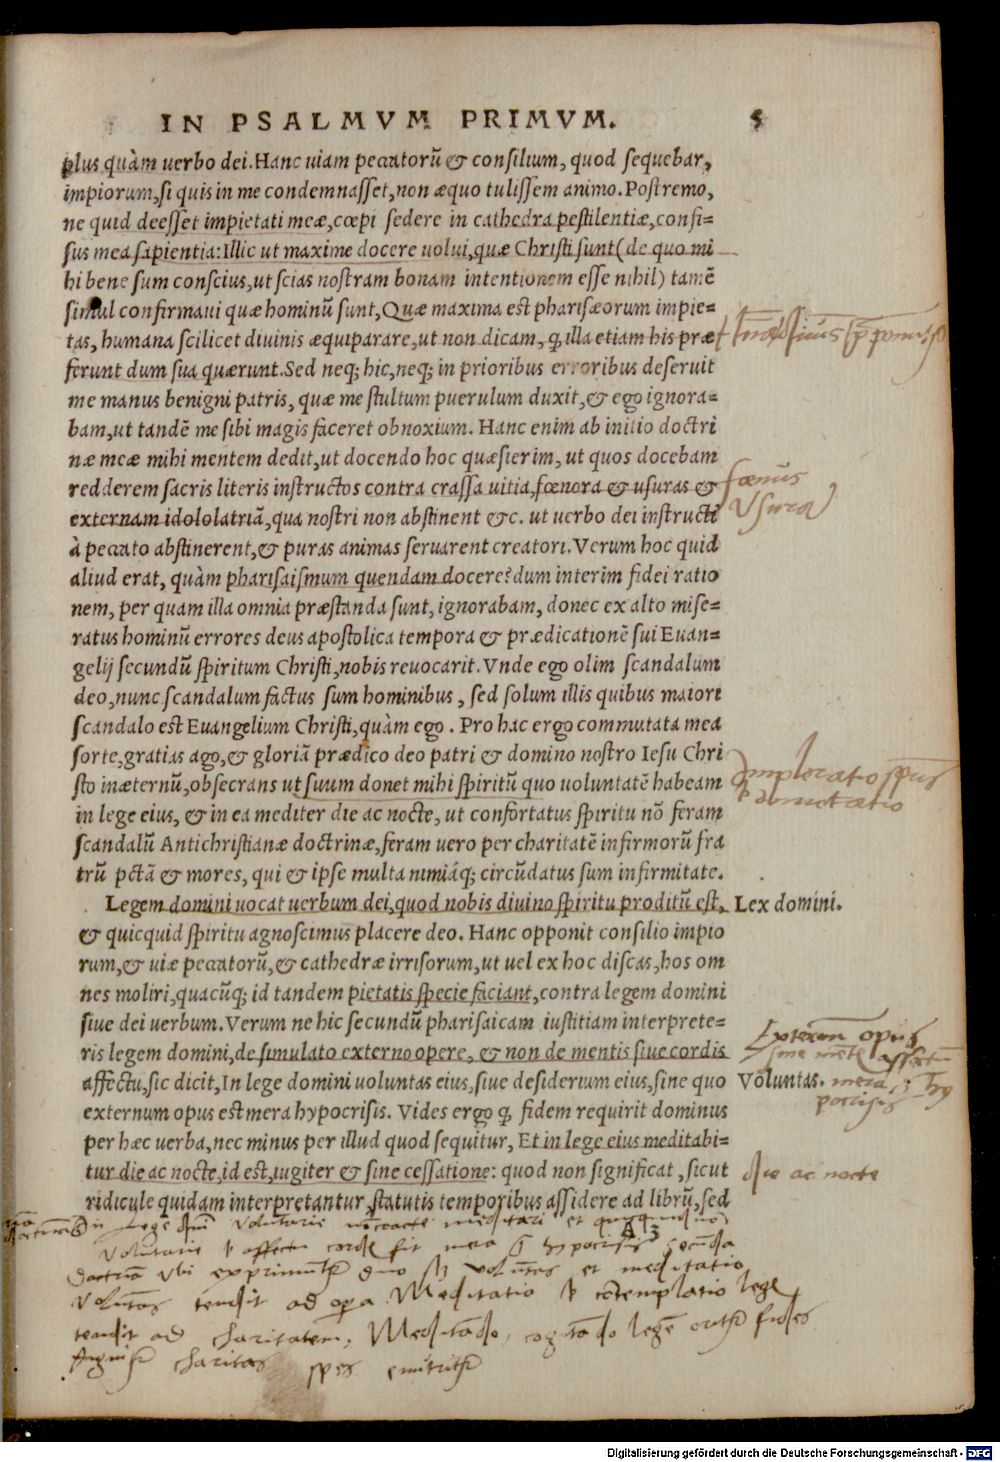 IN PSALMVM PRIMVM. 5
plus quàm uerbo dei. Hanc uiam peccatorū & consilium, quod sequebar,
impiorum, si quis in me condemnasset, non æquo tulissem animo. Postremo,
ne quid deesset impietati meæ, cœpi sedere in cathedra pestilentiæ, confi-
sus mea sapientia: Illic ut maxime docere uolui, quæ Christi sunt (de quo mi
hi bene sum conscius, ut scias nostram bonam intentionem esse nihil) tamē
simul confirmaui quæ hominū sunt, Quæ maxima est pharisæorum impie-
tas, humana scilicet diuinis æquiparare, ut non dicam, ꝙ illa etiam his præ
ferunt dum sua quærunt. Sed neq; hic, neq; in prioribus erroribus deseruit
me manus benigni patris, quæ me stultum puerulum duxit, & ego ignora-
bam, ut tandē me sibi magis faceret obnoxium. Hanc enim ab initio doctri
næ meæ mihi mentem dedit, ut docendo hoc quæsierim, ut quos docebam
redderem sacris literis instructos contra crassa uitia, fœnora & usuras &
fœnus
externam idololatriā, qua nostri non abstinent &c. ut uerbo dei instructi
Vsura
à peccato abstinerent, & puras animas seruarent creatori. Verum hoc quid
aliud erat, quàm pharisaismum quendam docere? dum interim fidei ratio
nem, per quam illa omnia præstanda sunt, ignorabam, donec ex alto mise-
ratus hominū errores deus apostolica tempora & prædicationē sui Euan-
gelij secundū spiritum Christi, nobis reuocarit. Vnde ego olim scandalum
deo, nunc scandalum factus sum hominibus, sed solum illis quibus maiori
scandalo est Euangelium Christi, quàm ego. Pro hac ergo commutata mea
sorte, gratias ago, & gloriā prædico deo patri & domino nostro Iesu Chri
sto inæternū, obsecrans ut suum donet mihi spiritū quo uoluntatē habeam
Imploratio
in lege eius, & in ea mediter die ac nocte, ut confortatus spiritu nō feram
scandalū Antichristianæ doctrinæ, feram uero per charitatē infirmorū fra
trū pctā & mores, qui & ipse multa nimiáq; circūdatus sum infirmitate.
Legem domini uocat uerbum dei, quod nobis diuino spiritu proditū est,
Lex domini.
& quicquid spiritu agnoscimus placere deo. Hanc opponit consilio impio
rum, & uiæ peccatorū, & cathedræ irrisorum, ut uel ex hoc discas, hos om
nes moliri, quacūq; id tandem pietatis specie faciant, contra legem domini
siue dei uerbum. Verum ne hic secundū pharisaicam iustitiam interprete-
Externum opus
ris legem domini, de simulato externo opere, & non de mentis siue cordis
sine
affectu, sic dicit, In lege domini uoluntas eius, siue desiderium eius, sine quo
Voluntas. mera
externum opus est mera hypocrisis. Vides ergo ꝙ fidem requirit dominus
per hæc uerba, nec minus per illud quod sequitur, Et in lege eius meditabi-
tur die ac nocte, id est, iugiter & sine cessatione: quod non significat, sicut
die ac nocte
ridicule quidam interpretantur, statutis temporibus assidere ad librū, sed
in lege voluntarie meditari et
fit mera hypocrisis
et meditatio
tendit ad opera Meditatio contemplatio lege
tendit ad charitatem, Meditādo, cogitādo legē fides
charitas spes
Digitalisierung gefördert durch die Deutsche Forschungsgemeinschaft - DFG